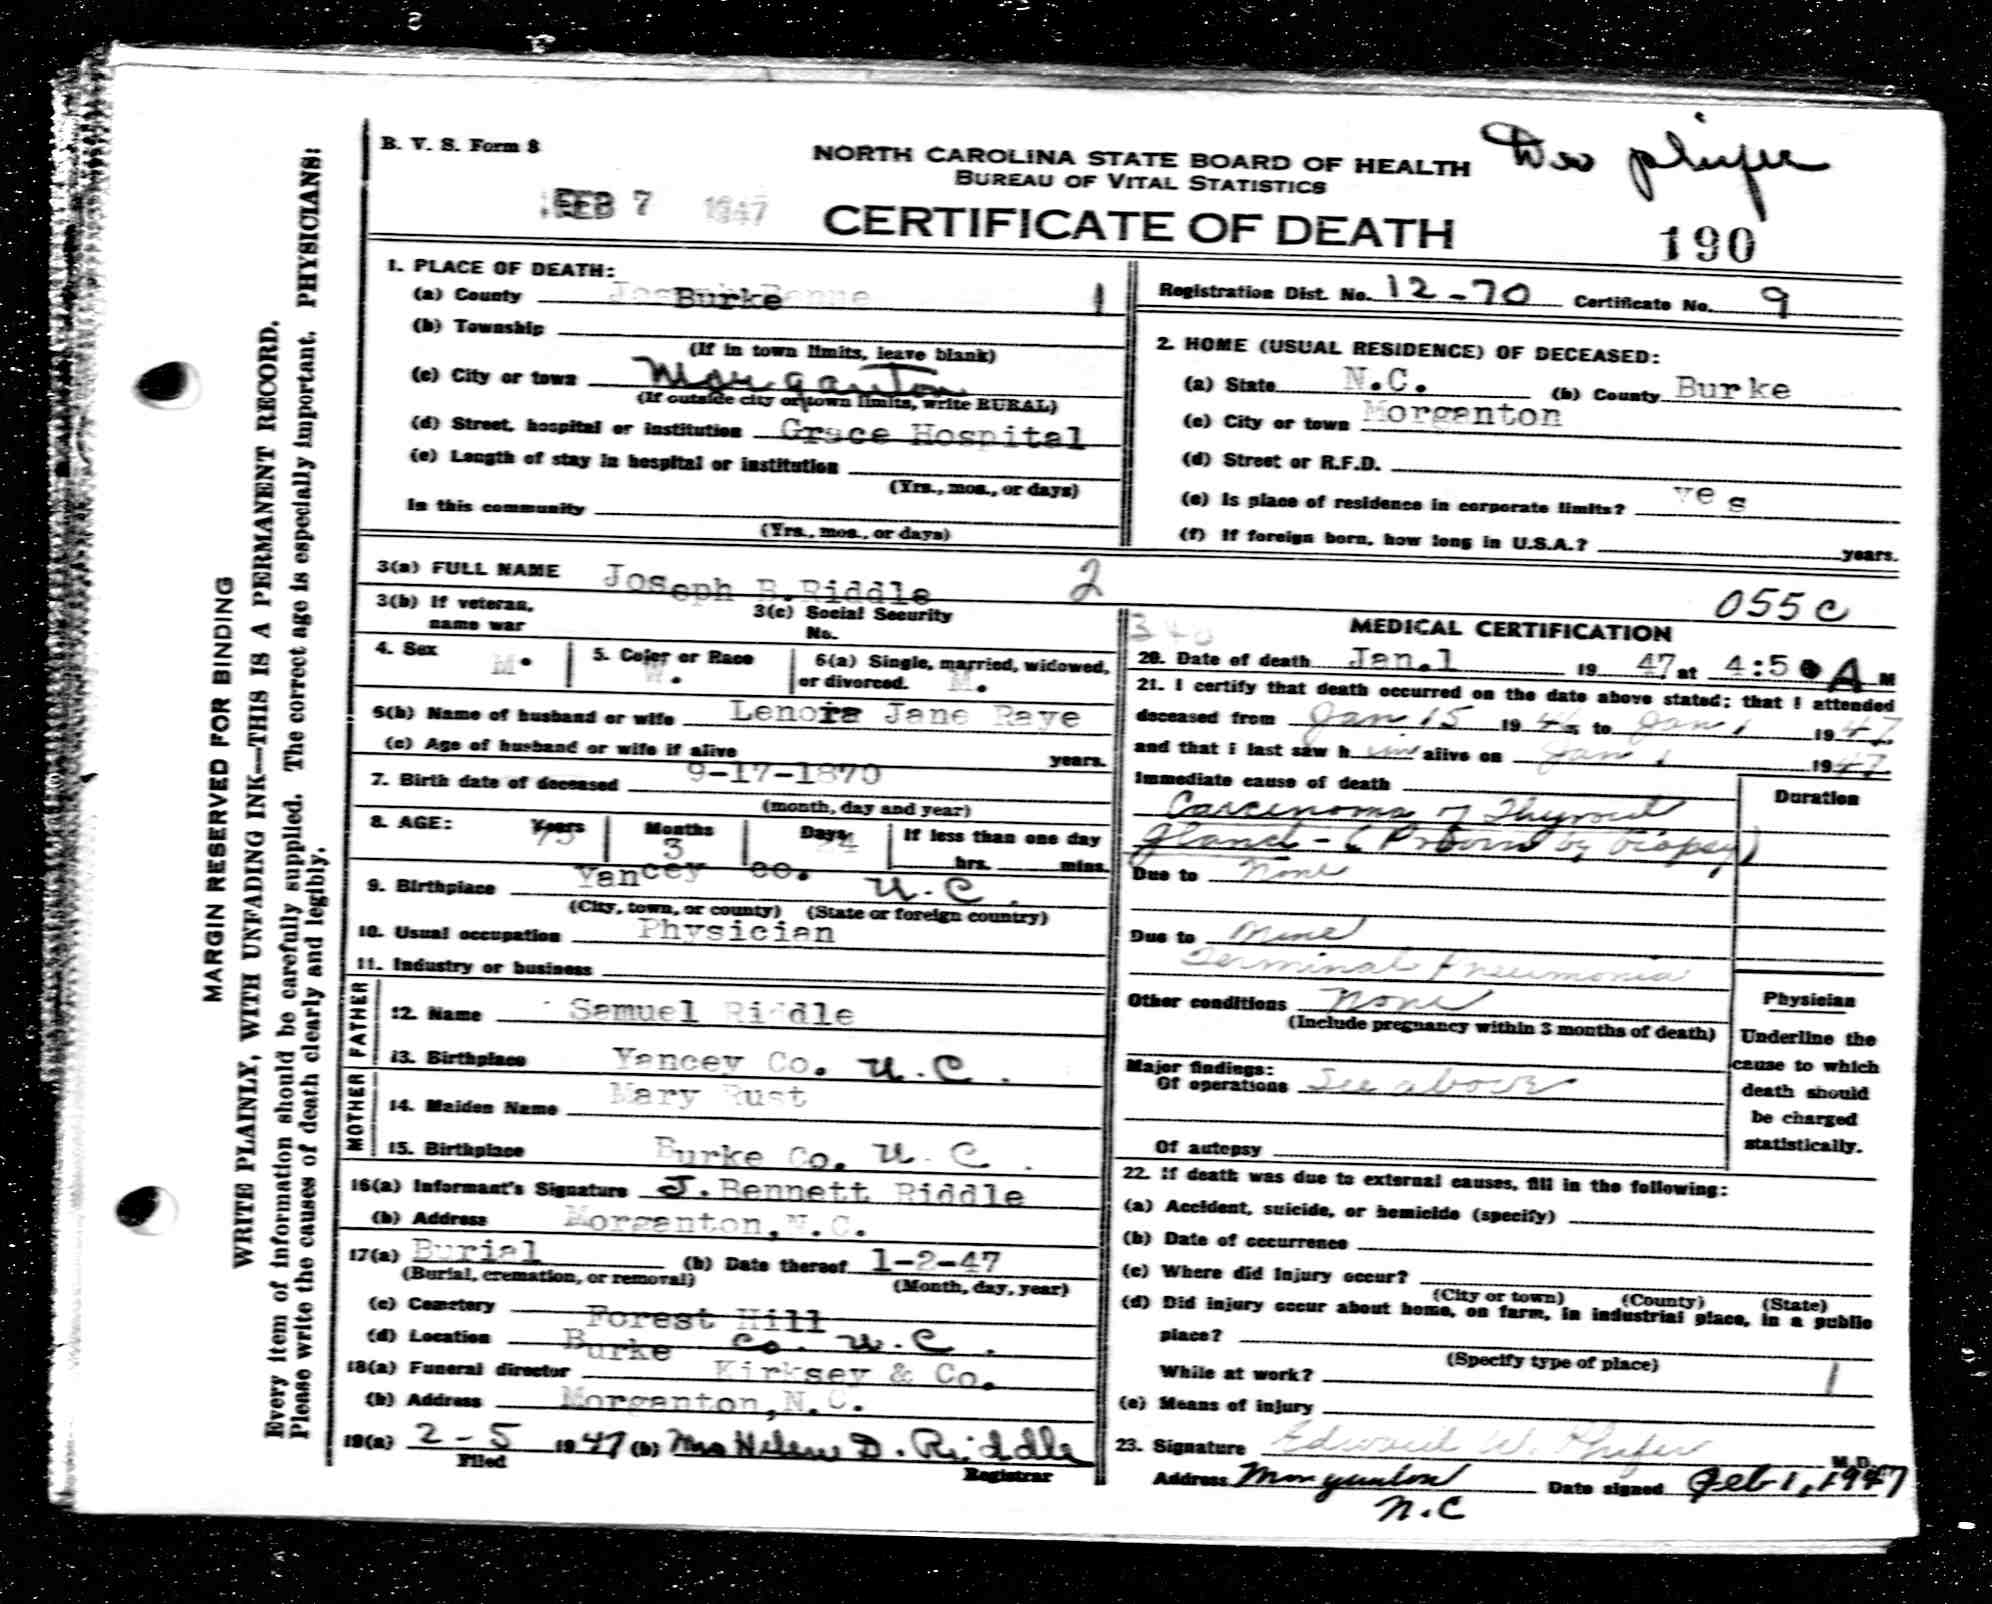 B. V. S. Form 8
NORTH CAROLINA STATE BOARD OF HEALTH
BUREAU OF VITAL STATISTICS
FEB 7 1947
CERTIFICATE OF DEATH
190
MARGIN RESERVED FOR BINDING
WRITE PLAINLY, WITH UNFADING INK—THIS IS A PERMANENT RECORD.
Every item of information should be carefully supplied. The correct age is especially important. PHYSICIANS:
Please write the causes of death clearly and legibly.
1. PLACE OF DEATH:
(a) County Burke 1
(b) Township
(If in town limits, leave blank)
(c) City or town Morganton
(If outside city or town limits, write RURAL)
(d) Street, hospital or institution Grace Hospital
(e) Length of stay in hospital or institution
(Yrs., mos., or days)
In this community
(Yrs., mos., or days)
Registration Dist. No. 12-70 Certificate No. 9
2. HOME (USUAL RESIDENCE) OF DECEASED:
(a) State N.C. (b) County Burke
(c) City or town Morganton
(d) Street or R.F.D.
(e) Is place of residence in corporate limits? yes
(f) If foreign born, how long in U.S.A.? years.
3(a) FULL NAME Joseph B.Riddle 2 055c
3(b) If veteran, name war
3(c) Social Security No.
4. Sex M.
5. Color or Race W.
6(a) Single, married, widowed, or divorced. M.
6(b) Name of husband or wife Lenora Jane Raye
(c) Age of husband or wife if alive years.
7. Birth date of deceased 9-17-1870
(month, day and year)
8. AGE: Years Months 3 Days If less than one day hrs. mins.
9. Birthplace Yancey co. N.C.
(City, town, or county) (State or foreign country)
10. Usual occupation Physician
11. Industry or business
FATHER
12. Name Samuel Riddle
13. Birthplace Yancey Co. N.C.
MOTHER
14. Maiden Name Mary Rust
15. Birthplace Burke Co. N.C.
16(a) Informant's Signature J.Bennett Riddle
(b) Address Morganton,N.C.
17(a) Burial (b) Date thereof 1-2-47
(Burial, cremation, or removal) (Month, day, year)
(c) Cemetery Forest Hill
(d) Location Burke Co. N.C.
18(a) Funeral director Kirksey & Co.
(b) Address Morganton,N.C.
19(a) 2-5 1947 (b) Mrs Helen D. Riddle
Filed Registrar
MEDICAL CERTIFICATION
20. Date of death Jan.1 19 47 at 4:50 A M
21. I certify that death occurred on the date above stated; that I attended
deceased from Jan 15 1946 to Jan 1 1947
and that I last saw him alive on Jan 1 1947
Immediate cause of death Duration
Carcinoma of Thyroid
gland - (Proven by biopsy)
Due to None
Due to None
Terminal Pneumonia
Other conditions None
(Include pregnancy within 3 months of death)
Major findings:
Of operations See above
Of autopsy
Physician
Underline the
cause to which
death should
be charged
statistically.
22. If death was due to external causes, fill in the following:
(a) Accident, suicide, or homicide (specify)
(b) Date of occurrence
(c) Where did injury occur?
(City or town) (County) (State)
(d) Did injury occur about home, on farm, in industrial place, in a public
place?
(Specify type of place)
While at work? 1
(e) Means of injury
23. Signature Edward W. Phifer M.D.
Address Morganton Date signed Feb 1, 1947
N.C